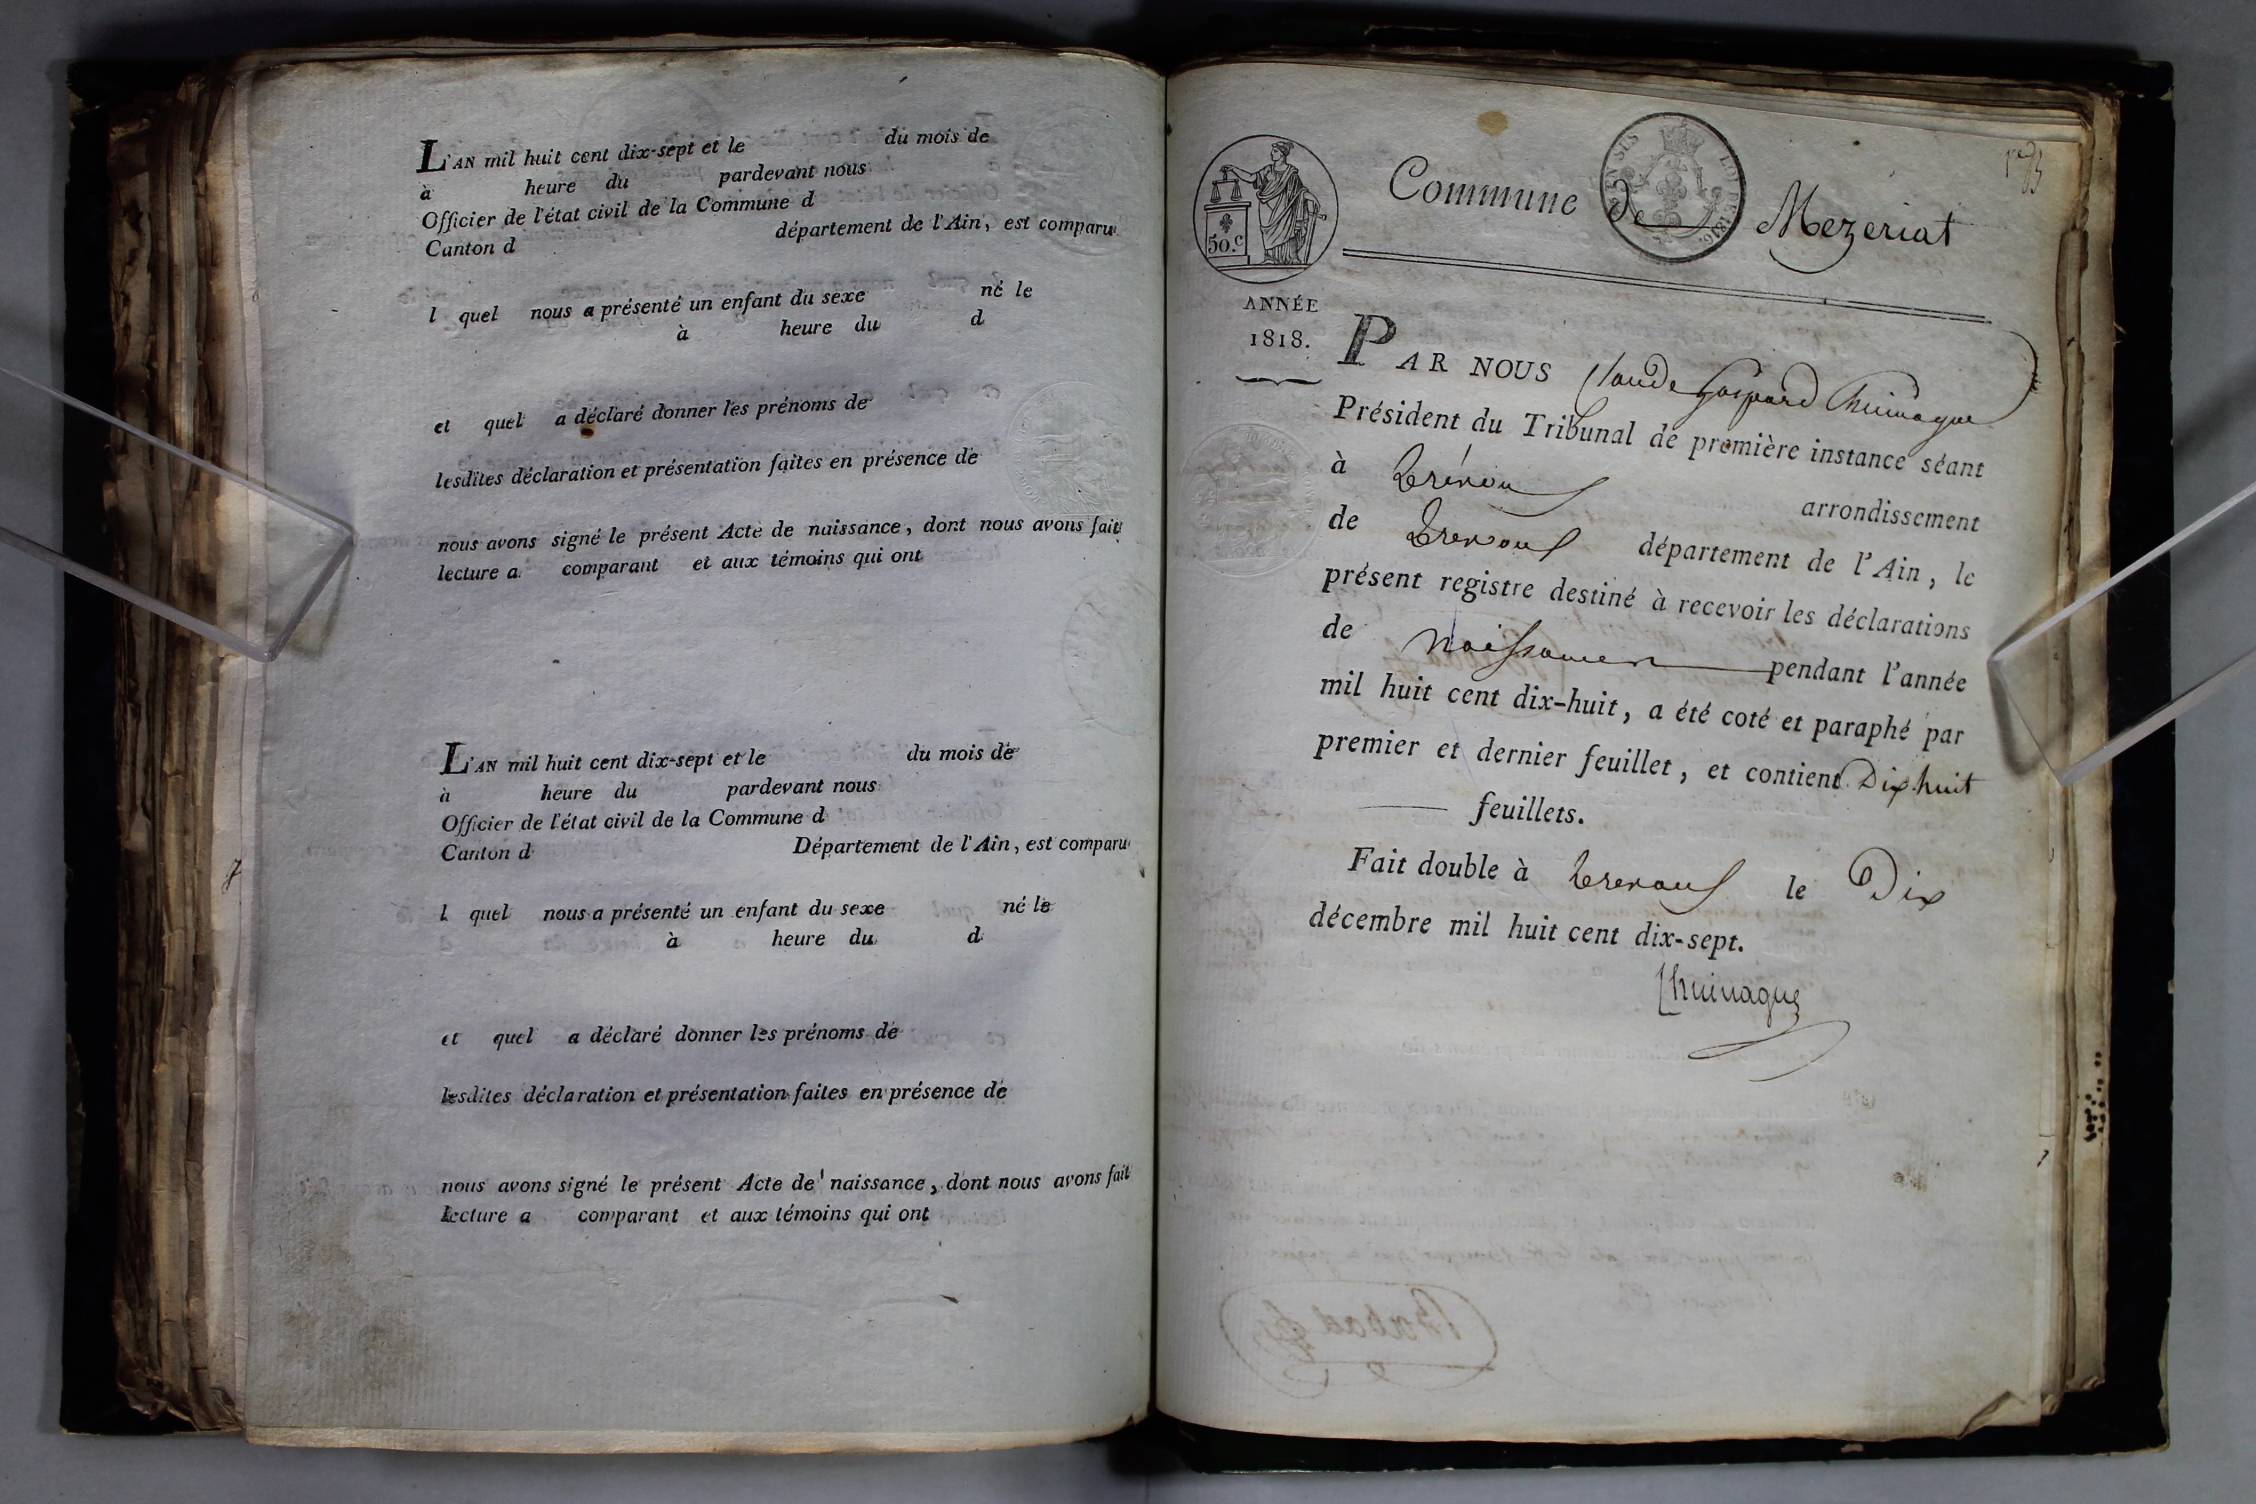 L'AN mil huit cent dix-sept et le du mois de
à heure du pardevant nous
Officier de l'état civil de la Commune d
Canton d département de l'Ain, est comparu
l quel nous a présenté un enfant du sexe né le
à heure du d
et quel a déclaré donner les prénoms de
lesdites déclaration et présentation faites en présence de
nous avons signé le présent Acte de naissance, dont nous avons fait
lecture a comparant et aux témoins qui ont
L'AN mil huit cent dix-sept et le du mois de
à heure du pardevant nous
Officier de l'état civil de la Commune d
Canton d Département de l'Ain, est comparu
l quel nous a présenté un enfant du sexe né le
à heure du d
et quel a déclaré donner les prénoms de
lesdites déclaration et présentation faites en présence de
nous avons signé le présent Acte de naissance, dont nous avons fait
lecture a comparant et aux témoins qui ont
Commune de Mezeriat
50.c
ANNÉE
1818.
PAR NOUS Claude Gaspard
Président du Tribunal de première instance séant
à Trévoux arrondissement
de Trevoux département de l'Ain, le
présent registre destiné à recevoir les déclarations
de Naissances pendant l'année
mil huit cent dix-huit, a été coté et paraphé par
premier et dernier feuillet, et contient Dix huit
feuillets.
Fait double à Trevoux le Dix
décembre mil huit cent dix-sept.